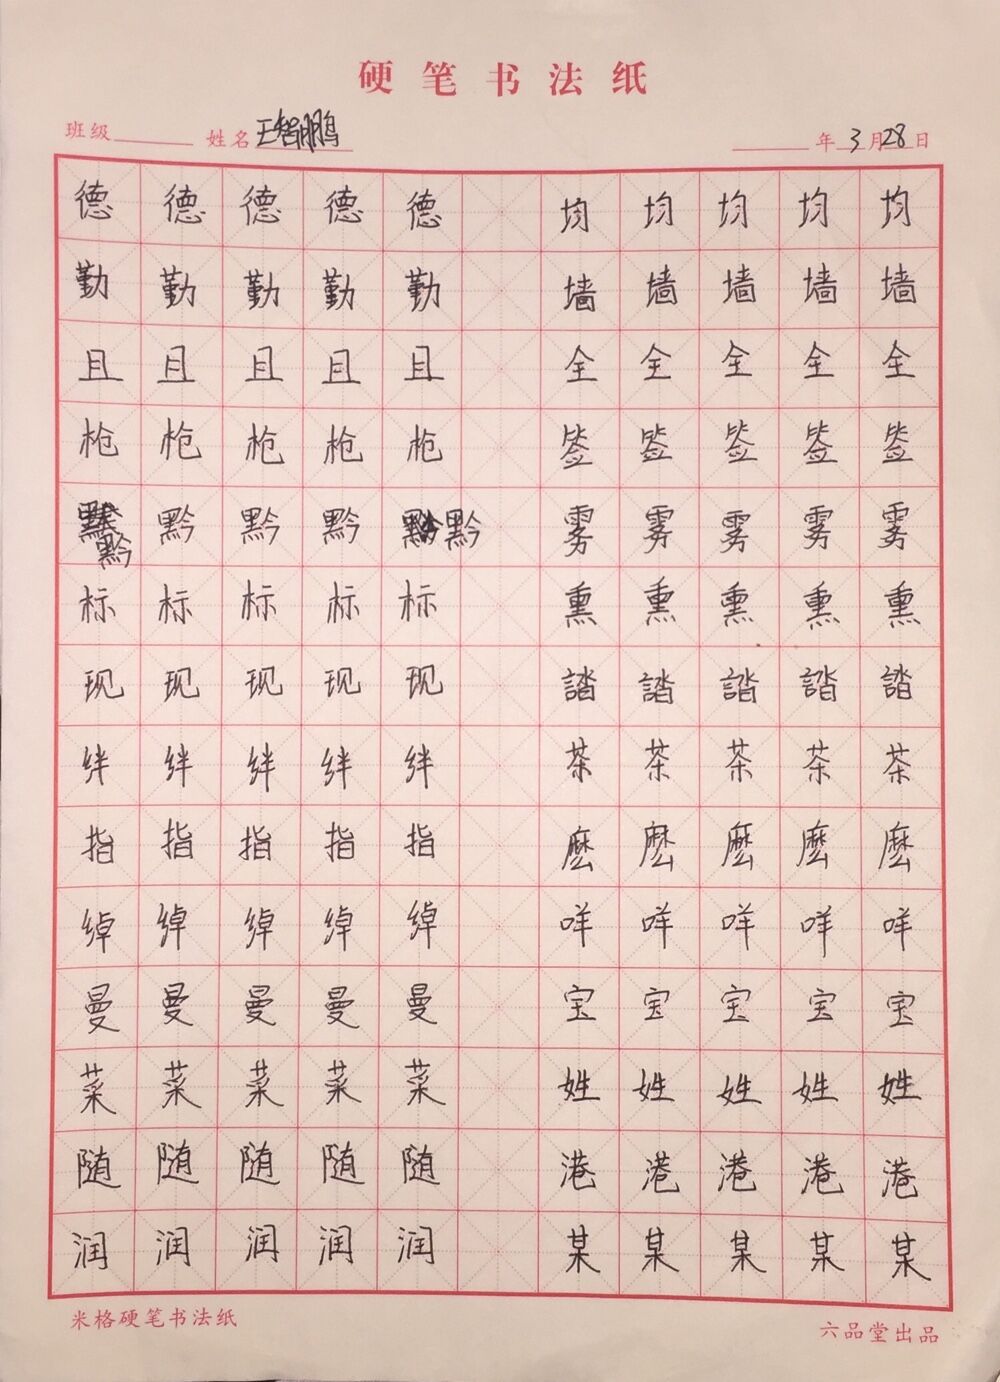 硬笔书法纸
班级 姓名 王智鹏 年 3 月 28 日
德 德 德 德 德 均 均 均 均 均
勤 勤 勤 勤 勤 墙 墙 墙 墙 墙
且 且 且 且 且 全 全 全 全 全
枪 枪 枪 枪 枪
黔 黔 黔 黔 黔 雾 雾 雾 雾 雾
标 标 标 标 标 熏 熏 熏 熏 熏
现 现 现 现 现 誻 誻 誻 誻 誻
绊 绊 绊 绊 绊 茶 茶 茶 茶 茶
指 指 指 指 指 麽 麽 麽 麽 麽
绰 绰 绰 绰 绰 咩 咩 咩 咩 咩
曼 曼 曼 曼 曼 宝 宝 宝 宝 宝
菜 菜 菜 菜 菜 姓 姓 姓 姓 姓
随 随 随 随 随 港 港 港 港 港
润 润 润 润 润 某 某 某 某 某
米格硬笔书法纸 六品堂出品